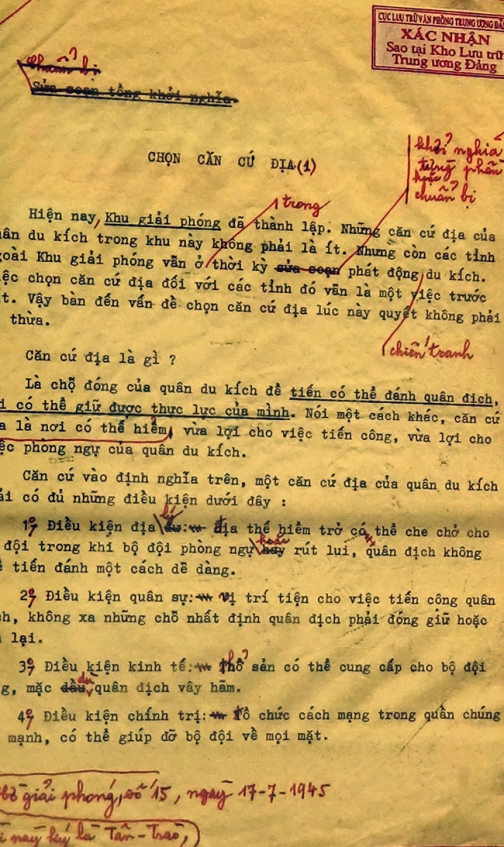 CỤC LƯU TRỮ VĂN PHÒNG TRUNG ƯƠNG ĐẢ
XÁC NHẬN
Sao tại Kho Lưu trữ
Trung ương Đảng
chuẩn bị
Sửa soạn tổng khởi nghĩa
CHỌN CĂN CỨ ĐỊA(1)
khởi nghĩa
từng phần
hoặc
chuẩn bị
trong
Hiện nay, Khu giải phóng đã thành lập. Những căn cứ địa của
ân du kích trong khu này không phải là ít. Nhưng còn các tỉnh
goài Khu giải phóng vẫn ở thời kỳ sửa soạn phát động du kích.
ệc chọn căn cứ địa đối với các tỉnh đó vẫn là một việc trước
t. Vậy bàn đến vấn đề chọn căn cứ địa lúc này quyết không phải
thừa.
chiến tranh
Căn cứ địa là gì ?
Là chỗ đóng của quân du kích để tiến có thể đánh quân địch,
i có thể giữ được thực lực của mình. Nói một cách khác, căn cứ
a là nơi có thế hiểm, vừa lợi cho việc tiến công, vừa lợi cho
ệc phòng ngự của quân du kích.
Căn cứ vào định nghĩa trên, một căn cứ địa của quân du kích
ải có đủ những điều kiện dưới đây :
lý
1º Điều kiện địa : địa thế hiểm trở có thể che chở cho
hoặc
đội trong khi bộ đội phòng ngự hay rút lui, quân địch không
ể tiến đánh một cách dễ dàng.
2º Điều kiện quân sự: vị trí tiện cho việc tiến công quân
ch, không xa những chỗ nhất định quân địch phải đóng giữ hoặc
lại.
3º Điều kiện kinh tế: thổ sản có thể cung cấp cho bộ đội
dù
g, mặc dầu quân địch vây hãm.
4º Điều kiện chính trị: tổ chức cách mạng trong quần chúng
mạnh, có thể giúp đỡ bộ đội về mọi mặt.
giải phóng, số 15, ngày 17-7-1945
nay ký là Tân-Trào,